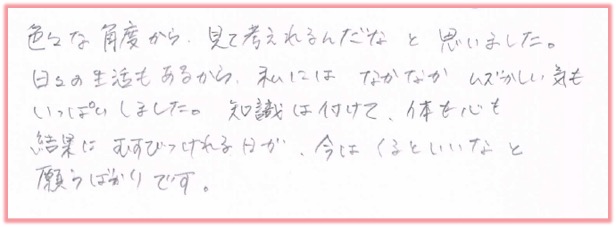 色々な角度から、見て考えれるんだな と 思いました。
日々の生活もあるから、私には なかなか ムズかしい気も
いっぱいしました。 知識は付けて、体も心も
結果に むすびつけれる日が、今は くるといいな と
願うばかりです。